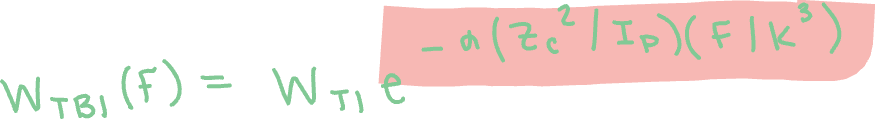 W_{TBI}(F) = W_{TI} e^{-α(Z_c^2 / I_p)(F / K^3)}